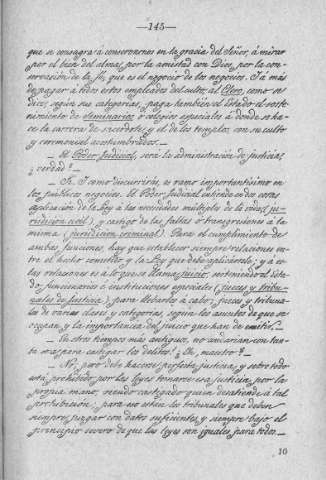 —145—
que se consagra á conservarnos en la gracia del Señor, á mirar
por el bien del alma, por la amistad con Dios, por la con-
servación de la fé, que es el negocio de los negocios. Y á más
de pagar á todos estos empleados del culto, al Clero, como se
dice, según sus categorías, paga también el Estado el soste-
nimiento de seminarios ó colegios especiales á donde se ha-
ce la carrera de sacerdote, y el de los templos con su culto
y ceremonial acostumbrados.—
— El Poder Judicial, será la administración de justicia,
¿verdad?—
— Sí. Y como discurrirás, es ramo importantísimo en
los públicos negocios. El Poder Judicial entiende en la
aplicación de la Ley á las necesidades múltiples de la vida (ju-
ridición civil) y castigo de las faltas ó transgresiones á la
misma (juridición criminal). Para el cumplimiento de
ambas funciones, hay que establecer siempre relaciones en-
tre el hecho cometido y la Ley que debe aplicársele; y á es-
tas relaciones es á lo que se llama juicio, existiendo al
funcionarios é instituciones especiales (jueces y tribu-
nales de justicia), para llevarlos á cabo; jueces y tribuna-
les de varias clases y categorías, según los asuntos de que se
ocupan, y la importancia del juicio que han de emitir.—
— En otros tiempos más antiguos, no andarían con tan-
ta cosa para castigar los delitos! ¿Eh, maestro?—
— No; pero debe hacerse perfecta justicia; y sobre todo
está prohibido por las leyes tomarse esa justicia por la
propia mano, siendo castigado quien desatiende á tal
prohibición; para eso están los tribunales que deben
siempre juzgar con datos suficientes, y siempre bajo el
principio severo de que las leyes son iguales para todos.—
10